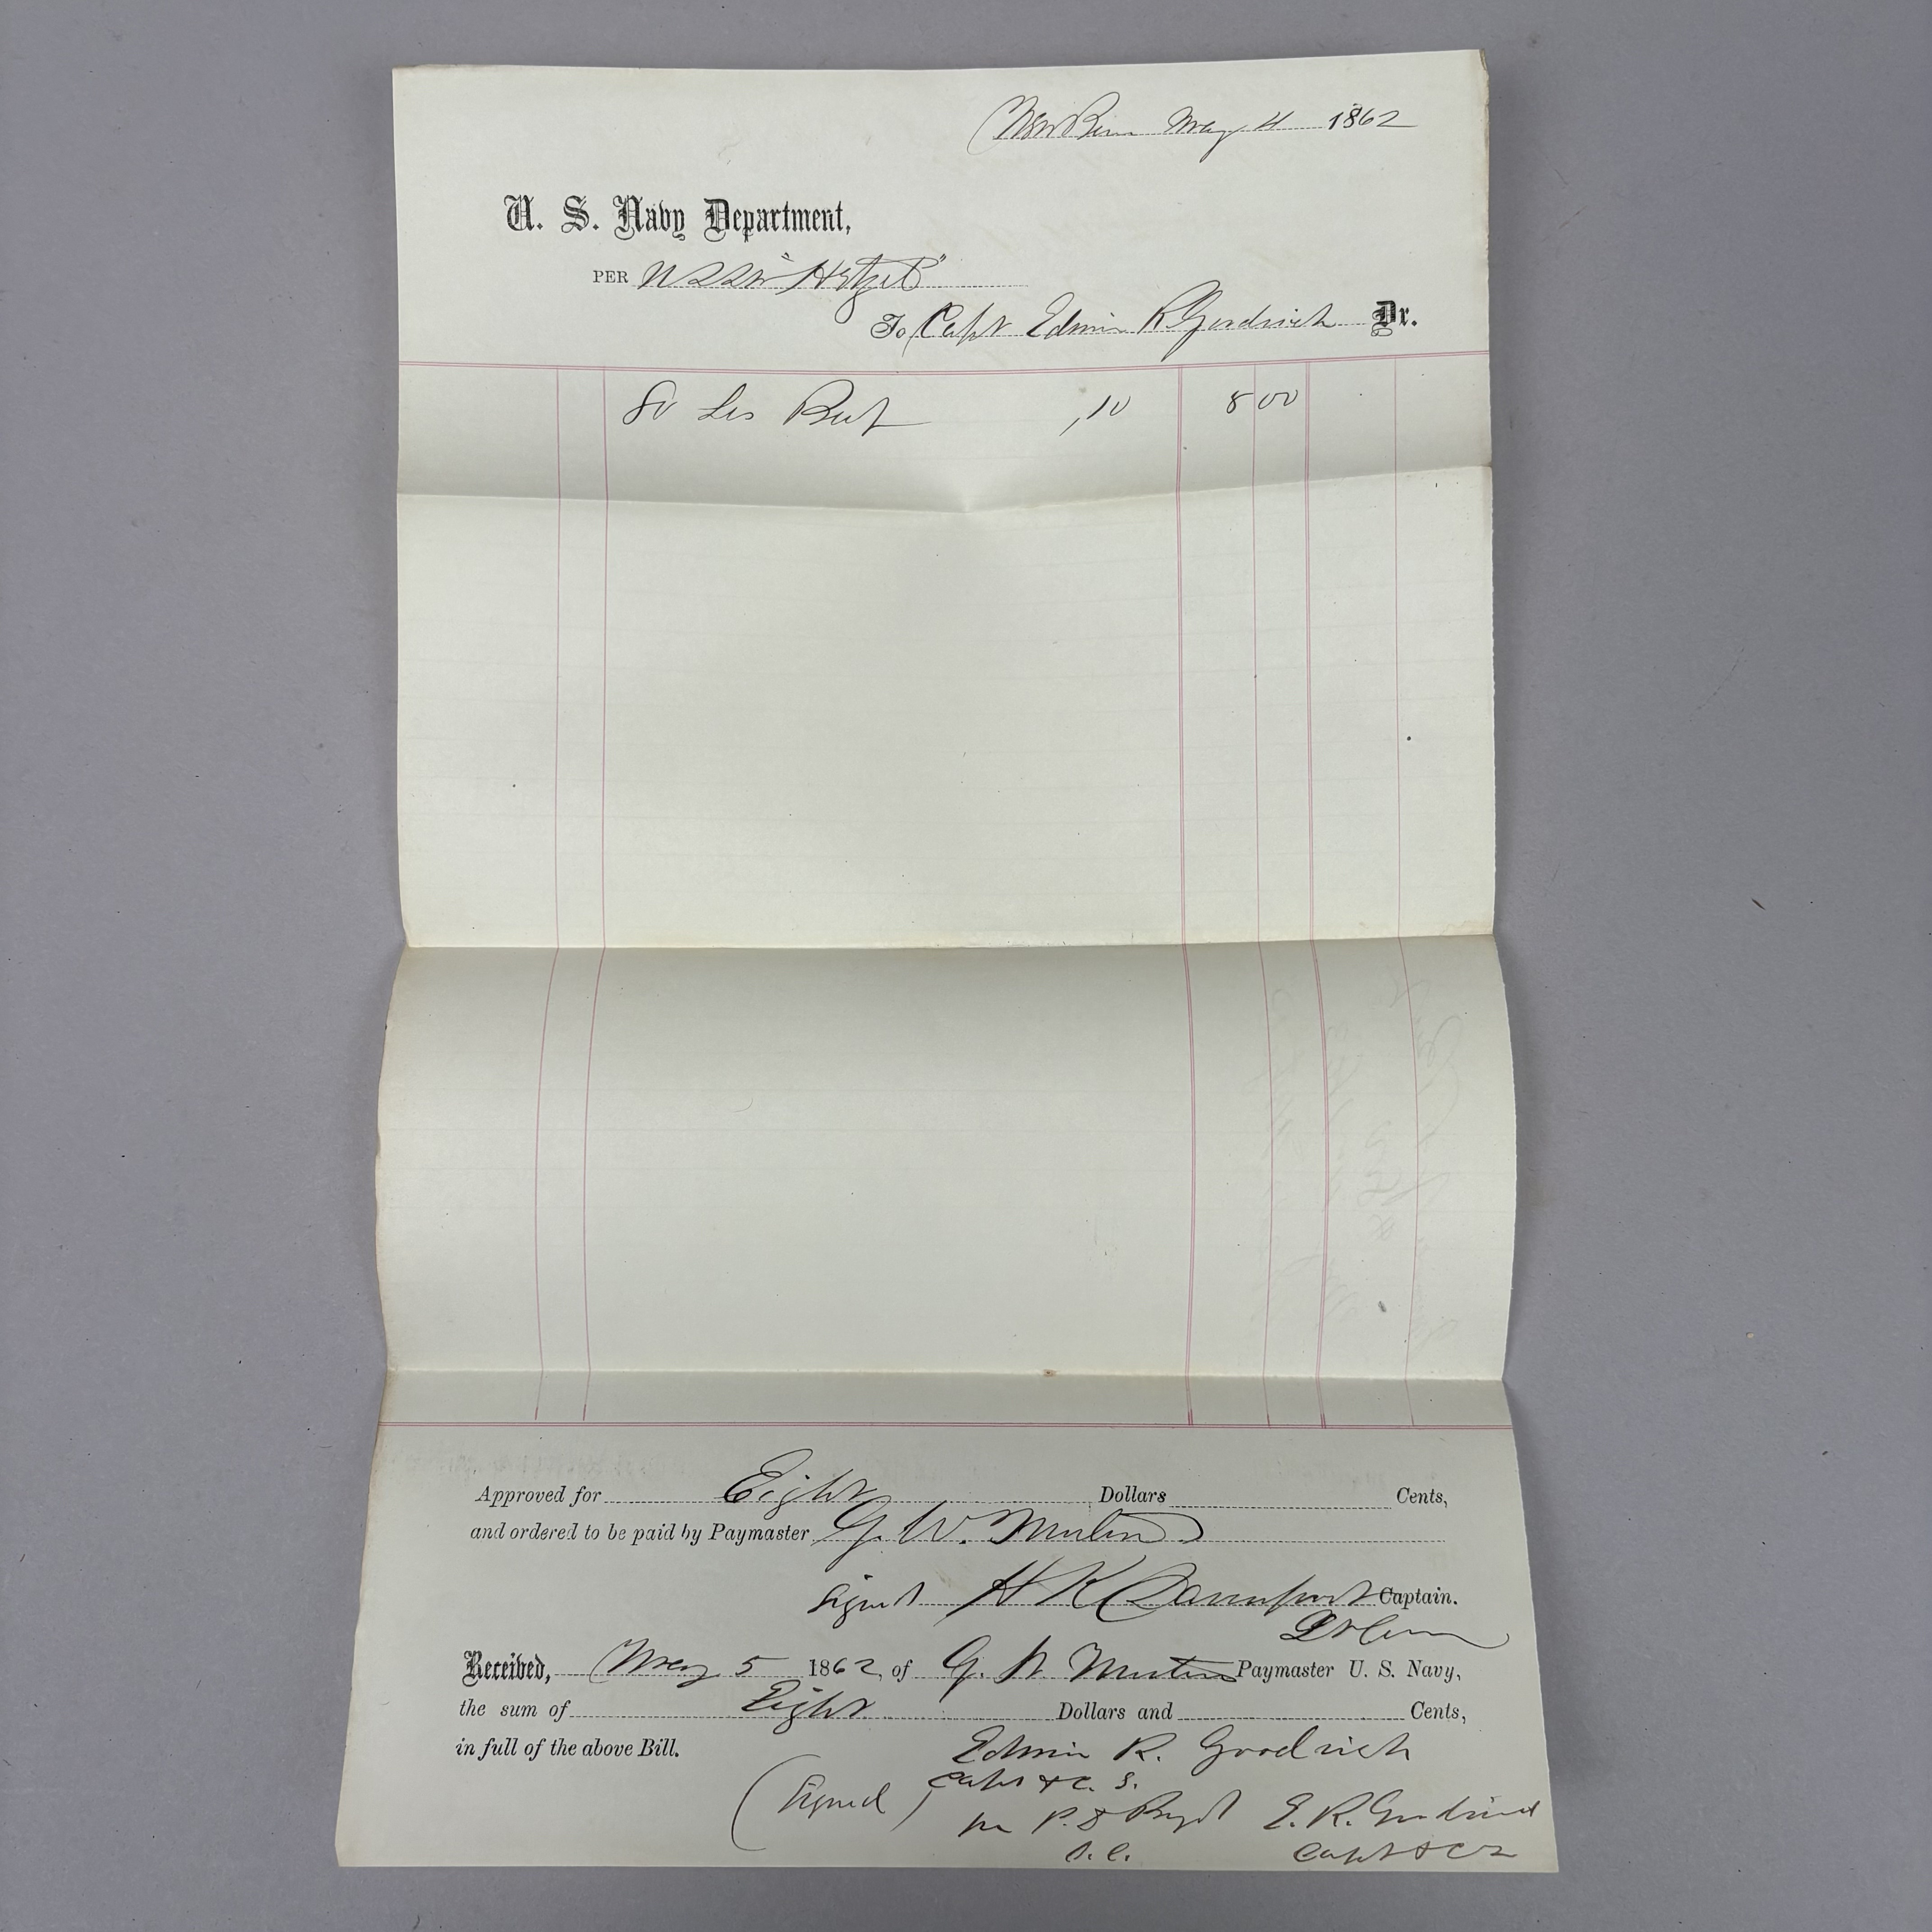 New Bern May 4 1862
U. S. Navy Department,
PER USS "Hetzel"
To Capt Edwin R. Goodrich Dr.
80 Lbs Beef ,10 8 00
Approved for Eight Dollars Cents,
and ordered to be paid by Paymaster G. W. Martin
Signed H K Davenport Captain.
Received, May 5 1862, of G. W. Martin Paymaster U. S. Navy,
the sum of Eight Dollars and Cents,
in full of the above Bill.
Edwin R. Goodrich
Capt & C. S.
(Signed)
per P. S. E. R. Goodrich
Capt & CS